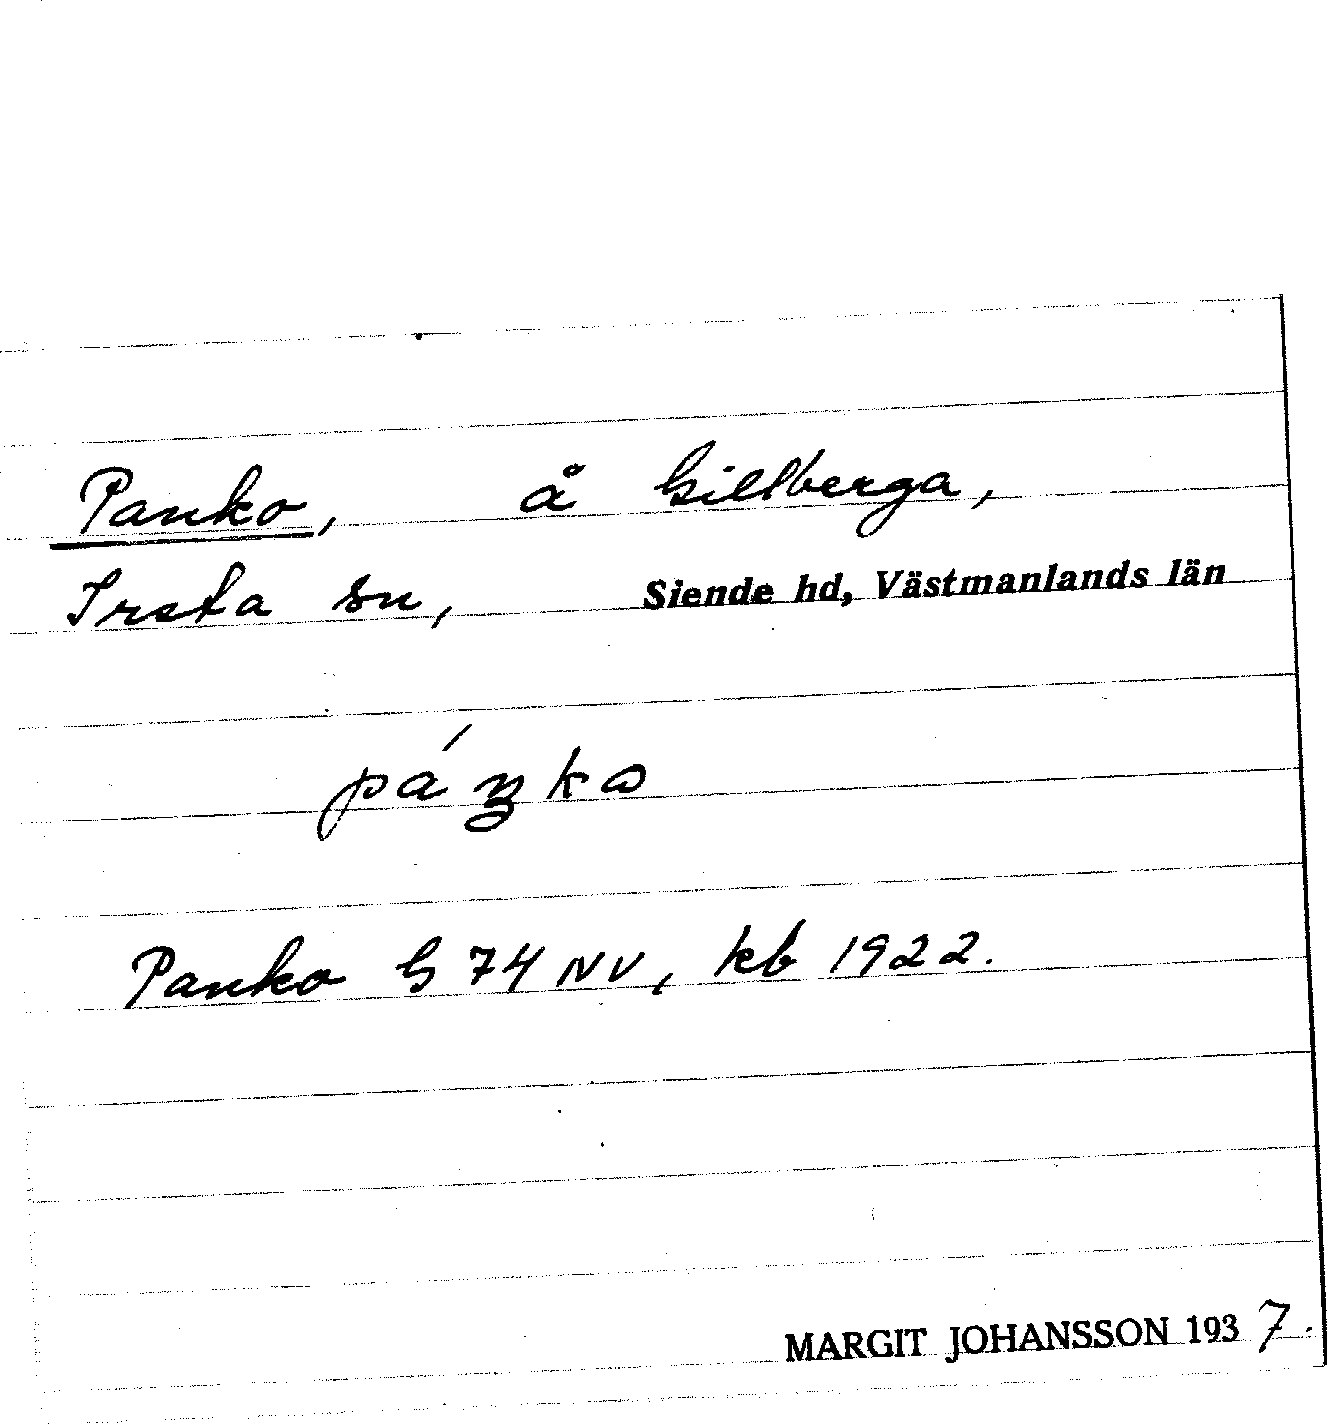 Panko, å Gillberga,
Irsta sn, Siende hd, Västmanlands län
páŋko
Panko G 74 NV, kb 1922.
MARGIT JOHANSSON 1937.